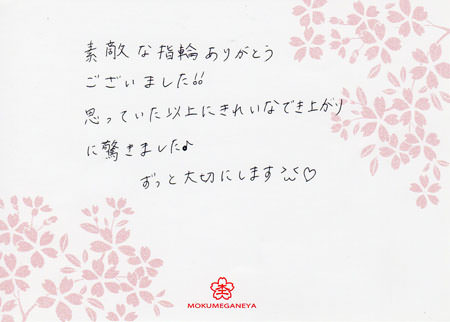 素敵な指輪ありがとう
ございました!!
思っていた以上にきれいなでき上がり
に驚きました♪
ずっと大切にします♡
MOKUMEGANEYA